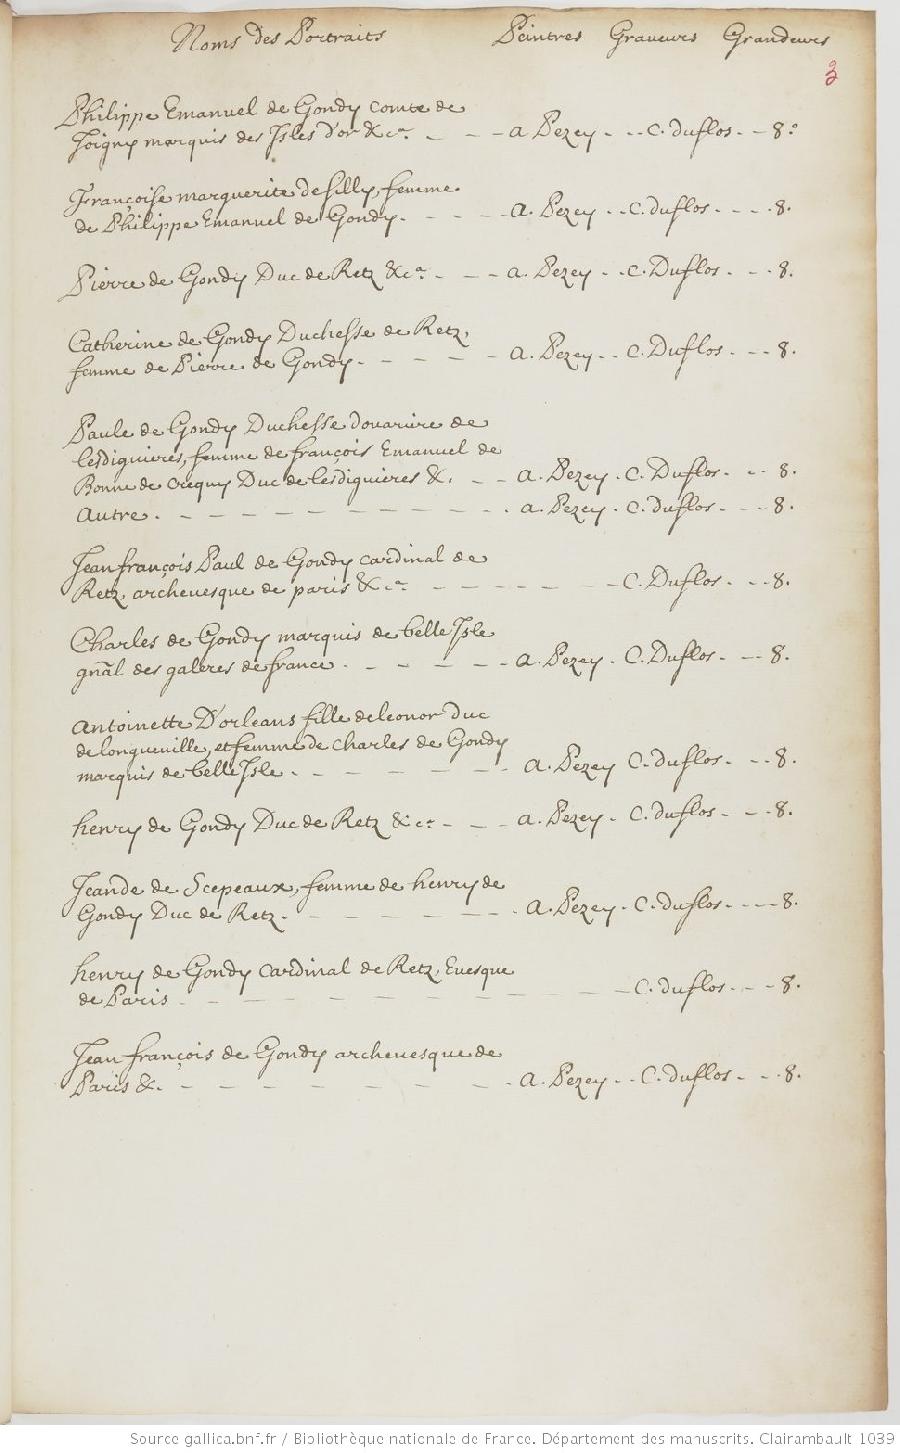 Noms des Portraits Peintres Graveurs Grandeurs
3
Philippe Emanuel de Gondy comte de
Joigny marquis des Isles d'or &ca. - - - a Pezey - - C. duflos - - 8o
Françoise marguerite de silly, femme
de Philippe Emanuel de Gondy. - - - - a. Pezey - - C. duflos - - - - 8.
Pierre de Gondy Duc de Retz &ca. - - - a. Pezey - - C. Duflos - - - 8.
Catherine de Gondy Duchesse de Retz,
femme de Pierre de Gondy. - - - - - a. Pezey - - C. Duflos - - - 8.
Paule de Gondy Duchesse douarire de
lesdiguieres, femme de françois Emanuel de
Bonne de crequy Duc de lesdiguieres &. - - a. Pezey . C. Duflos - - - 8.
autre. - - - - - - - - - - - a. Pezey . C. duflos - - - 8.
Jean françois Paul de Gondy cardinal de
Retz, archeuesque de paris &ca - - - - - - - C. Duflos - - - 8.
Charles de Gondy marquis de belle Isle
gnāl des galeres de france . - - - - - a. Pezey . C. Duflos - - - 8.
antoinette D'orleans fille de leonor duc
de longueuille, et femme de Charles de Gondy
marquis de belle Isle . - - - - - - - a. Pezey C. duflos - - - 8.
henry de Gondy Duc de Retz &ca. - - - a. Pezey - C. duflos - - - 8.
Jeande de Scepeaux, femme de henry de
Gondy Duc de Retz. - - - - - - - a. Pezey - C. duflos - - - - 8.
henry de Gondy cardinal de Retz, Euesque
de Paris - - - - - - - - - - - - C. duflos - - - 8.
Jean françois de Gondy archeuesque de
Paris &. - - - - - - - - - a. Pezey - - C. duflos - - - 8.
Source gallica.bnf.fr / Bibliothèque nationale de France. Département des manuscrits. Clairambault 1039